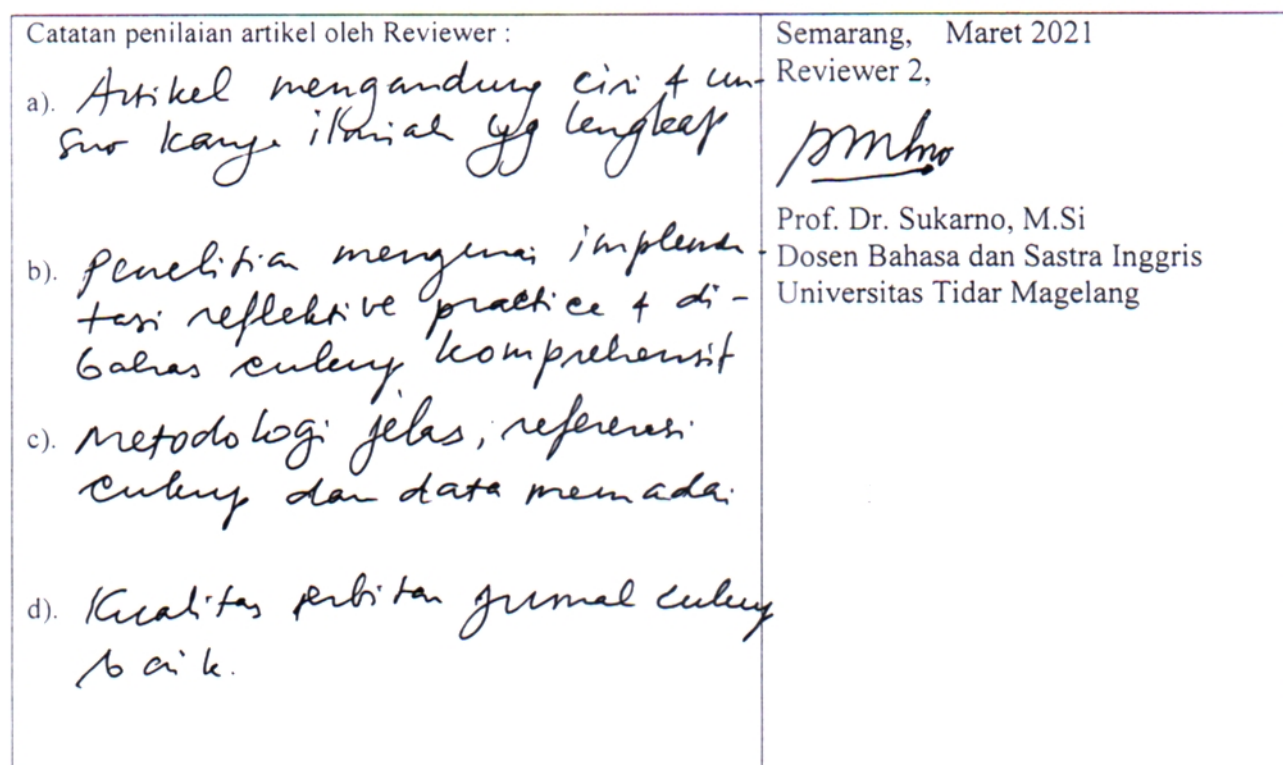 Catatan penilaian artikel oleh Reviewer :
a). Artikel mengandung ciri & un-
sur karya ilmiah yg lengkap
b). Penelitian mengenai implemen-
tasi reflektive practice & di-
bahas cukup komprehensif
c). Metodologi jelas, referensi
cukup dan data memadai
d). Kualitas terbitan jurnal cukup
baik.
Semarang, Maret 2021
Reviewer 2,
Prof. Dr. Sukarno, M.Si
Dosen Bahasa dan Sastra Inggris
Universitas Tidar Magelang